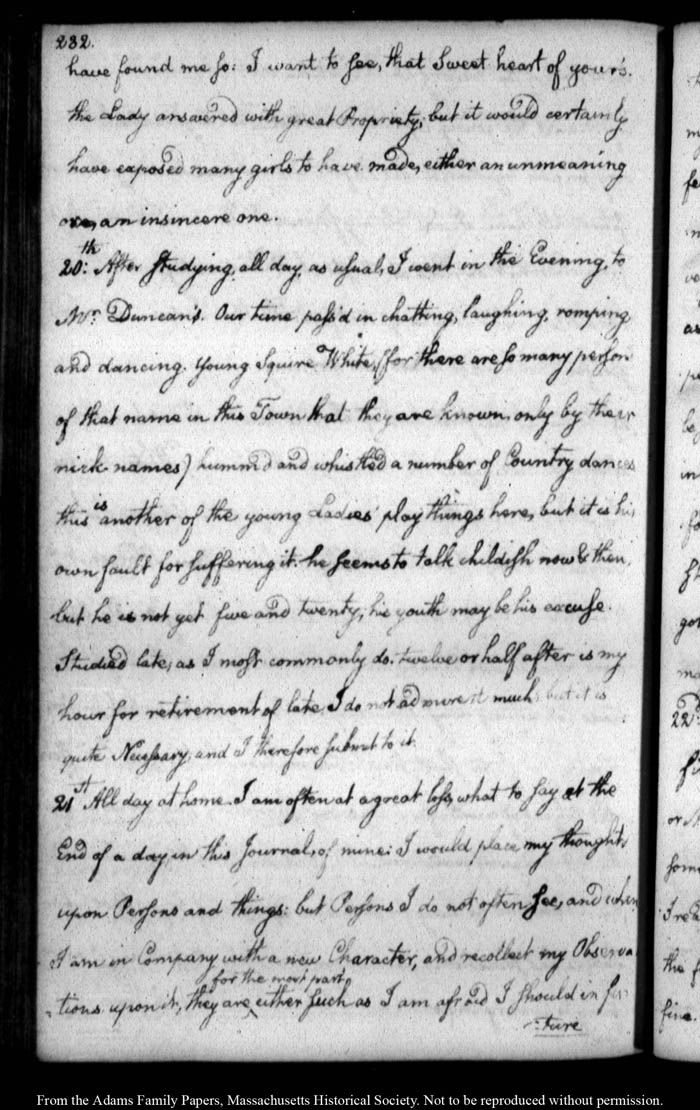 232.
have found me so: I want to see, that Sweet heart of your's.
the Lady answered with great Propriety; but it would certainly
have exposed many girls to have made, either an unmeaning
or an insincere one.
20:th After studying, all day, as usual, I went in the Evening, to
Mr: Duncan's. Our time pass'd in chatting, laughing, romping
and dancing. Young Squire White, (for there are so many persons
of that name in this Town that they are known, only by their
nick names) humm'd and whistled a number of Country dances
this is another of the young Ladies' play things here, but it is his
own fault for suffering it. he seems to talk childish now & then,
but he is not yet five and twenty, his youth may be his excuse.
Studied late, as I most commonly do. twelve or half after is my
hour for retirement of late. I do not admire it much but it is
quite Necessary, and I therefore submit to it.
21st All day at home. I am often at a great loss, what to say at the
End of a day in this Journal, of mine: I would place my thoughts
upon Persons and things: but Persons I do not often see, and when
I am in Company with a new Character, and recollect my Observa
for the most part,
tions upon it, they are either such as I am afraid I should in fu
-ture
my
fe
as
be
in
got
22d
or
some
the
fine.
From the Adams Family Papers, Massachusetts Historical Society. Not to be reproduced without permission.